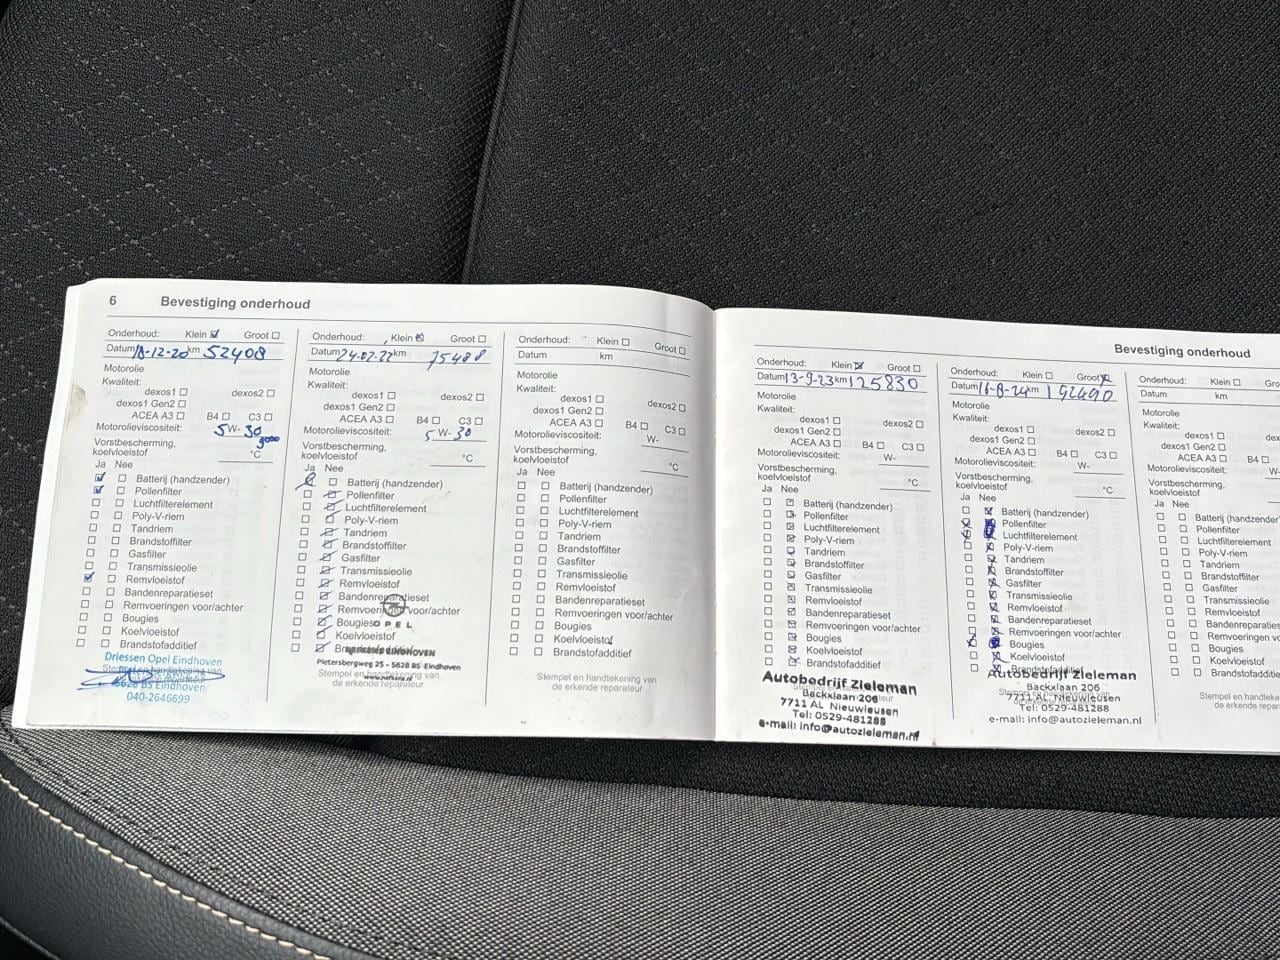 6 Bevestiging onderhoud
Onderhoud: Klein Groot
Datum 18-12-20 km 52408
Motorolie
Kwaliteit:
dexos1 dexos2
dexos1 Gen2
ACEA A3 B4 C3
Motorolieviscositeit: 5 W- 30
Vorstbescherming,
koelvloeistof °C
Ja Nee
Batterij (handzender)
Pollenfilter
Luchtfilterelement
Poly-V-riem
Tandriem
Brandstoffilter
Gasfilter
Transmissieolie
Remvloeistof
Bandenreparatieset
Remvoeringen voor/achter
Bougies
Koelvloeistof
Brandstofadditief
Driessen Opel Eindhoven
5628 BS Eindhoven
040-2646699
Onderhoud: Klein Groot
Datum 24-02-22 km 75488
Motorolie
Kwaliteit:
dexos1 dexos2
dexos1 Gen2
ACEA A3 B4 C3
Motorolieviscositeit: 5 W- 30
Vorstbescherming,
koelvloeistof °C
Ja Nee
Batterij (handzender)
Pollenfilter
Luchtfilterelement
Poly-V-riem
Tandriem
Brandstoffilter
Gasfilter
Transmissieolie
Remvloeistof
Bandenreparatieset
Remvoeringen voor/achter
Bougies
OPEL
Koelvloeistof
EINDHOVEN
Pietersbergweg 25 - 5628 BS Eindhoven
Stempel en handtekening van
de erkende reparateur
Onderhoud: Klein Groot
Datum km
Motorolie
Kwaliteit:
dexos1 dexos2
dexos1 Gen2
ACEA A3 B4 C3
Motorolieviscositeit: W-
Vorstbescherming,
koelvloeistof °C
Ja Nee
Batterij (handzender)
Pollenfilter
Luchtfilterelement
Poly-V-riem
Tandriem
Brandstoffilter
Gasfilter
Transmissieolie
Remvloeistof
Bandenreparatieset
Remvoeringen voor/achter
Bougies
Koelvloeistof
Brandstofadditief
Stempel en handtekening van
de erkende reparateur
Bevestiging onderhoud
Onderhoud: Klein Groot
Datum 13-9-23 km 125830
Motorolie
Kwaliteit:
dexos1 dexos2
dexos1 Gen2
ACEA A3 B4 C3
Motorolieviscositeit: W-
Vorstbescherming,
koelvloeistof °C
Ja Nee
Batterij (handzender)
Pollenfilter
Luchtfilterelement
Poly-V-riem
Tandriem
Brandstoffilter
Gasfilter
Transmissieolie
Remvloeistof
Bandenreparatieset
Remvoeringen voor/achter
Bougies
Koelvloeistof
Brandstofadditief
Autobedrijf Zieleman
Backxlaan 206
7711 AL Nieuwleusen
Tel: 0529-481288
e-mail: info@autozieleman.nl
Onderhoud: Klein Groot
Datum 16-8-24 km 192490
Motorolie
Kwaliteit:
dexos1 dexos2
dexos1 Gen2
ACEA A3 B4 C3
Motorolieviscositeit: W-
Vorstbescherming,
koelvloeistof °C
Ja Nee
Batterij (handzender)
Pollenfilter
Luchtfilterelement
Poly-V-riem
Tandriem
Brandstoffilter
Gasfilter
Transmissieolie
Remvloeistof
Bandenreparatieset
Remvoeringen voor/achter
Bougies
Koelvloeistof
Brandstofadditief
Autobedrijf Zieleman
Backxlaan 206
7711 AL Nieuwleusen
Tel: 0529-481288
e-mail: info@autozieleman.nl
Onderhoud: Klein
Datum km
Motorolie
Kwaliteit:
dexos1
dexos1 Gen2
ACEA A3 B4
Motorolieviscositeit: W-
Vorstbescherming,
koelvloeistof
Ja Nee
Batterij (handzender
Pollenfilter
Luchtfilterelement
Poly-V-riem
Tandriem
Brandstoffilter
Gasfilter
Transmissieolie
Remvloeistof
Bandenreparatieset
Remvoeringen
Bougies
Koelvloeistof
Brandstofadditief
Stempel en
de erkende